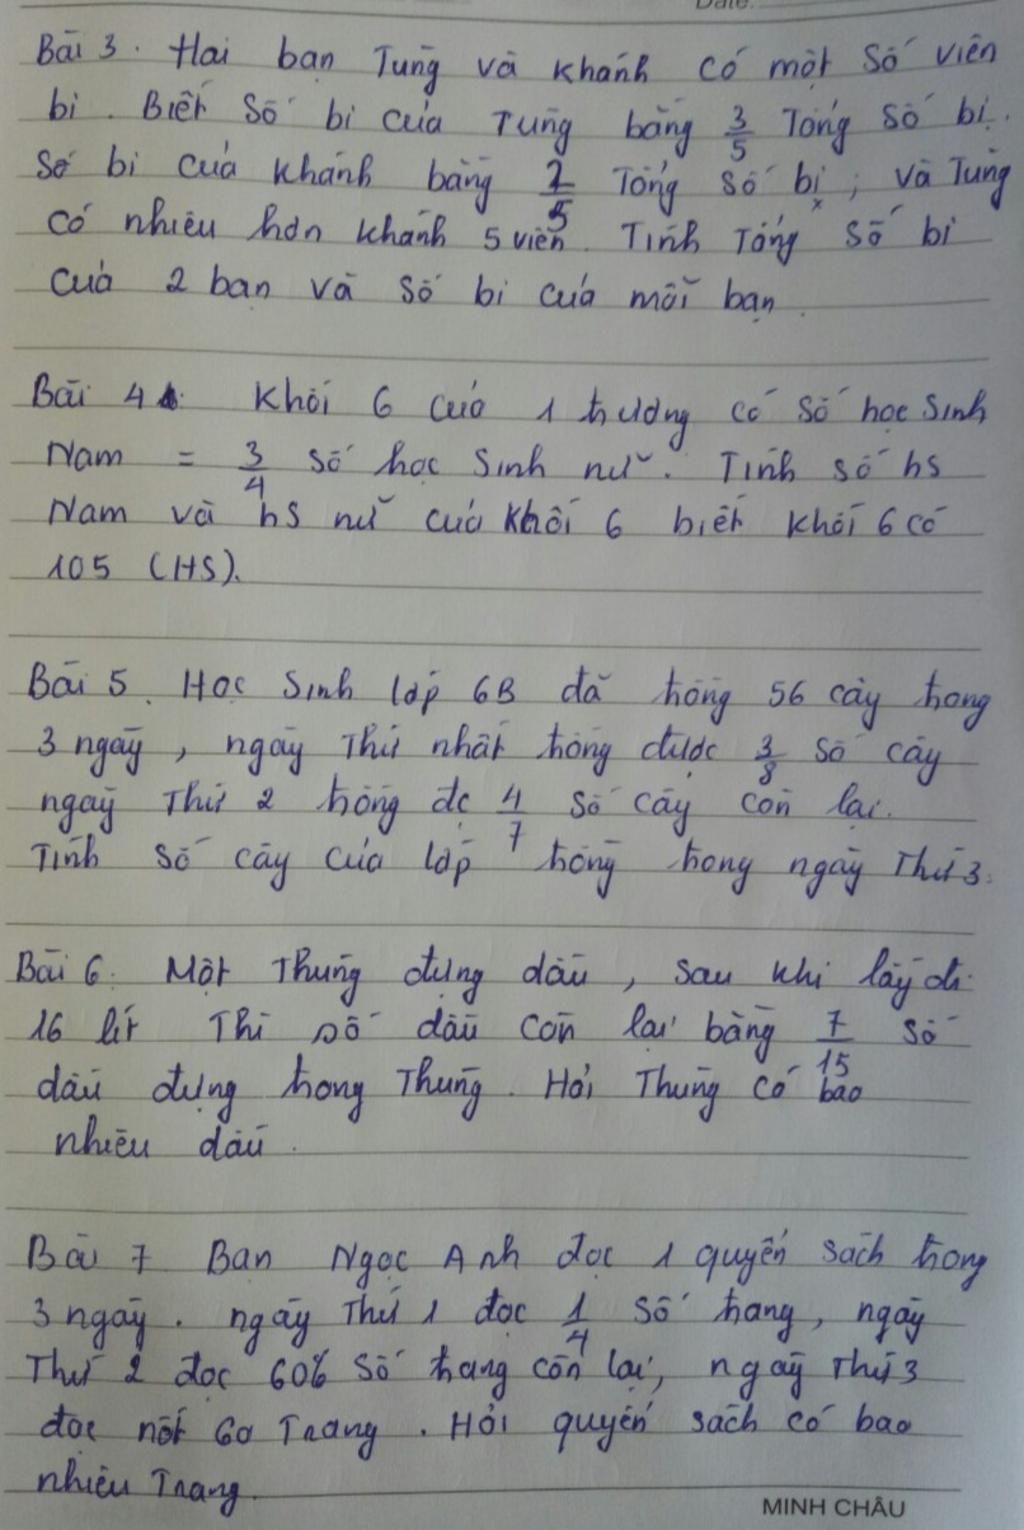 Date:
Bài 3. Hai bạn Tùng và Khánh có một số viên
bi. Biết số bi của Tùng bằng 3/5 Tổng số bi.
Số bi của Khánh bằng 2/5 Tổng số bi; và Tùng
có nhiều hơn Khánh 5 viên. Tính Tổng số bi
của 2 bạn và số bi của mỗi bạn.
Bài 4: Khối 6 của 1 trường có số học sinh
Nam = 3/4 số học sinh nữ. Tính số hs
Nam và hs nữ của khối 6 biết khối 6 có
105 (HS).
Bài 5. Học sinh lớp 6B đã trồng 56 cây trong
3 ngày, ngày thứ nhất trồng được 3/8 số cây
ngày Thứ 2 trồng đc 4/7 số cây còn lại.
Tính số cây của lớp trồng trong ngày Thứ 3.
Bài 6. Một Thùng đựng dầu, sau khi lấy đi
16 lít Thì số dầu còn lại bằng 7/15 số
dầu đựng trong Thùng. Hỏi Thùng có bao
nhiêu dầu.
Bài 7 Bạn Ngọc Anh đọc 1 quyển sách trong
3 ngày. ngày Thứ 1 đọc 1/4 số trang, ngày
Thứ 2 đọc 60% số trang còn lại, ngày Thứ 3
đọc nốt 60 Trang. Hỏi quyển sách có bao
nhiêu Trang.
MINH CHÂU